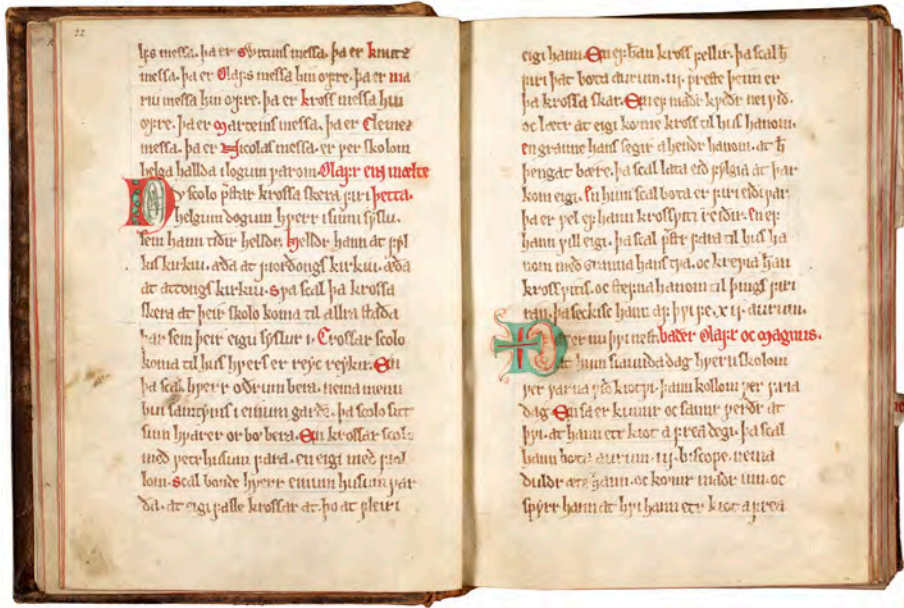 22
lꝼs messa. þa er sviðuns messa. þa er knutz
messa. þa er Olafs messa hin øꝼre. þa er ma
riu messa hin øꝼre. þa er kross messa hin
øꝼre. þa er marteins messa. þa er Clemez
messa. þa er Nicolas messa. er ver skolom
helga hallda i logum varom. Olafr einn mælte
Nv scolo prestar krossa skera firi þetta.
helgum dogum hverr i sinni syslu.
sem hann tidir helldr. helldr hann at fyl
kis kirkiu. æda at fiordongs kirkiu. æda
at attongs kirkiu. sva scal þa krossa
skera at þeir skolo koma til allra stada
þar sem þeir eigu syslur i. Crossar scolo
koma til hus hvers er reyc reykir. En
þa scal hverr odrum bera. nema menn
bui samtynis i einum garde. þa scolo sitt
sinn hvarer or bo bera. En krossar scolo
med vetr husum fara. en eigi med sæl
lom. scal bonde hverr einum husum var
da. at eigi falle krossar at. þo at fleiri
eigi hann. En ef han kross fellir. þa scal h
firi þat bota aurum .iij. preste þeim er
þa krossa skar. En ef madr kvedr nei vid.
oc lætr at eigi kome kross til hus hanom.
en granne hans segir a hendr hanom. at h
þengat bære. þa scal lata eid fylgia at þar
kom eigi. Su hin scal bota er firi eidi var.
þa er vel ef hann krossviti reidir. en ef
hann vill eigi. þa scal prestr fara til hus ha
nom med granna hans tva. oc krevia han
krossvitis. oc stefna hanom til þings firi
ran. þa seckisc hann af þvi fe .xij. aurum.
Þat er nu þvi nest. bader Olafr oc Magnus.
at hinn siaunda dag hvern skolom
ver varna vid kiotvi. þann kollom ver fria
dag. En sa er kunnr oc sannr verdr at
þvi. at hann etr kiot a freadegi. þa scal
hann bota aurum .iij. biscope. nema
duldr æte hann. oc komr madr inn. oc
spyrr hann at hvi hann etr kiot a frea